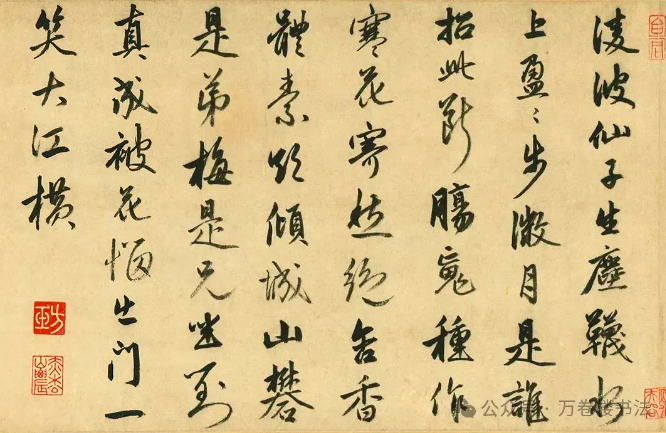 淩波仙子生塵韈水
上盈〻步微月是誰
招此斷腸魂種作
寒花寄愁絕含香
體素欲傾城山礬
是弟梅是兄坐對
真成被花惱出門一
笑大江橫
公众号 · 万卷楼书法